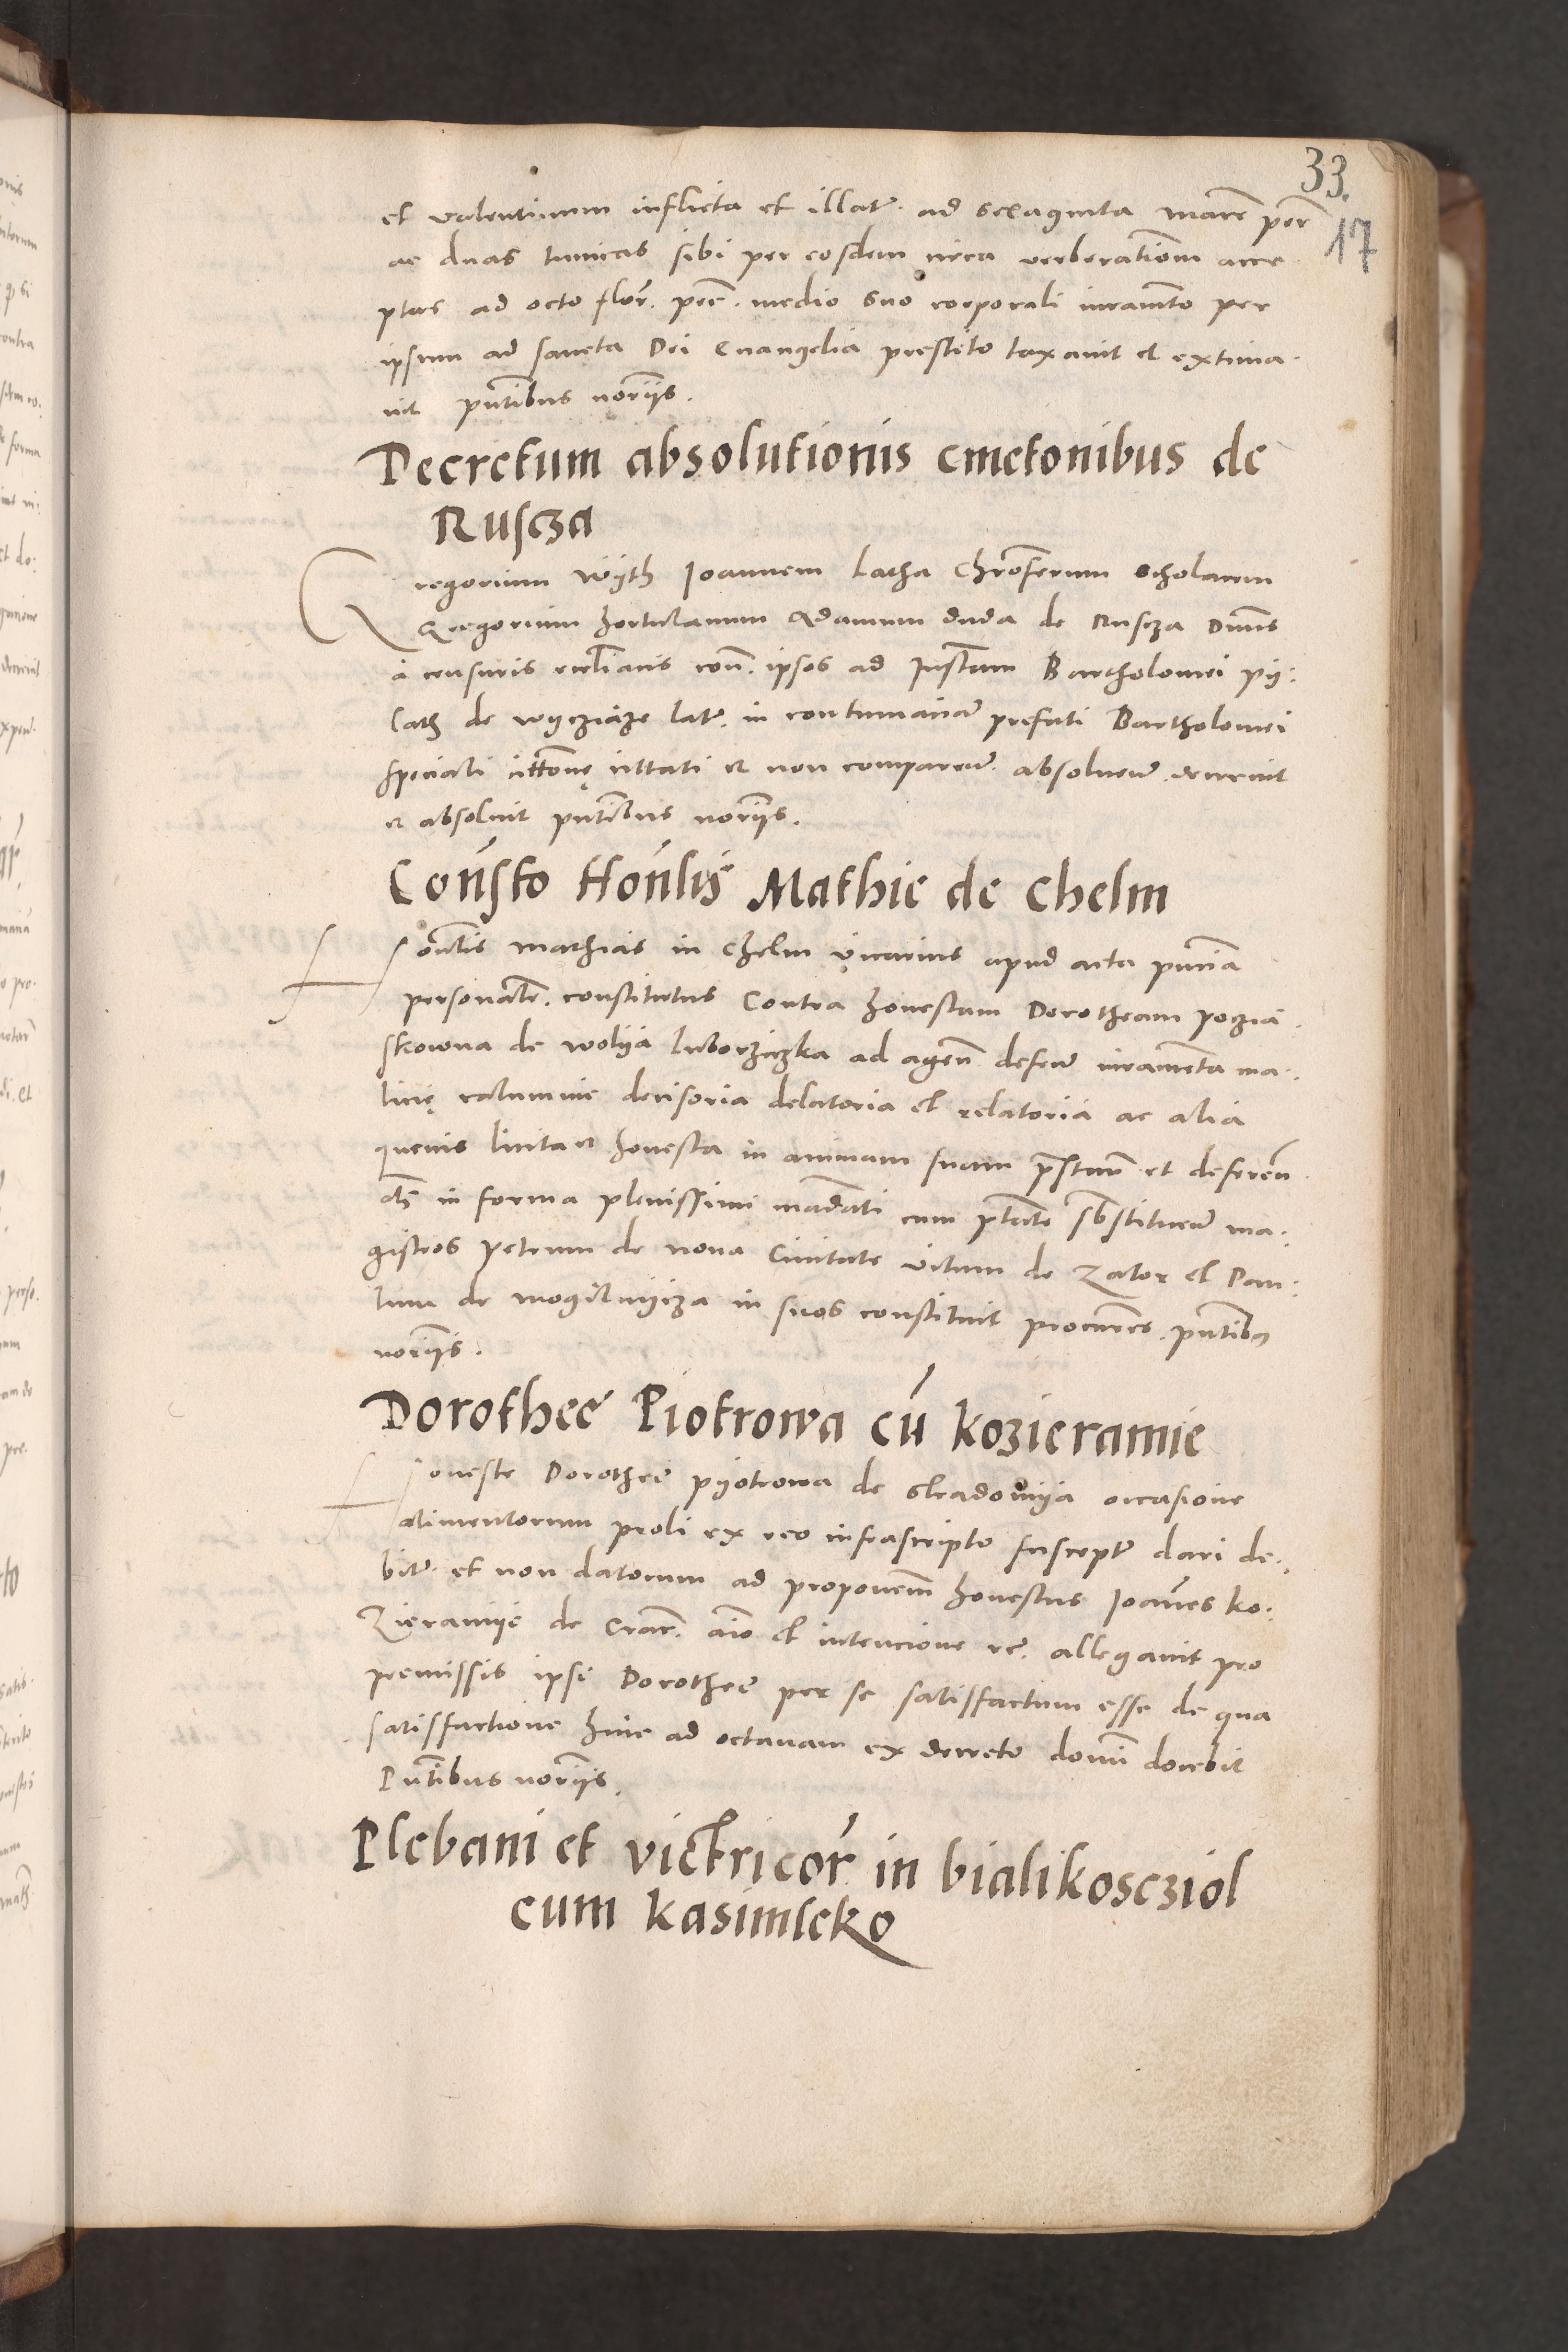 33.
17
et valentinum inflicta et illat. ad sexaginta marc pec
ac duas tunicas sibi per eosdem circa verberationem acce
ptas ad octo flor. pec. medio suo corporali iuramto per
ipsum ad sancta Dei Euangelia prestito taxauit et extima
uit pntibus noriis.
Decretum absolutionis cmetonibus de
Ruscza
Gregorium wyth Ioannem Latha Chroferum scholarem
Gregorium hortulanum Adamum duda de Ruscza Dnus
a censuris ecclianis con. ipsos ad Instam Bartholomei py
lath de wycziaze lat. in contumaciam prefati Bartholomei
speciali citone cittati et non comparen. absoluen. decreuit
et absoluit pntibus noriis.
Consto Honlis Mathie de Chelm
Honlis mathias in Chelm vicarius apud acta pncia
personalr. constitutus Contra honestam Dorotheam poczia
skowna de wolya luborzaczka ad agen defen iuramenta ma
licie calumnie decisoria delatoria et relatoria ac alia
queuis licita et honesta in animam suam prstan et deferen
als in forma plenissimi madati cum ptate sbstituen ma
gistros Petrum de noua Ciuitate vitum de Zator et Pau
lum de mogilnycza in suos constituit procures. pntibus
noriis.
Dorothee Piotrowa cu kozieramie
Honeste Dorothee pyotrowa de stradomya occasione
alimentorum proli ex reo infrascripto suscept dari de
bit. et non datorum ad proponem honestus Ioanes ko
zieramye de Crac. aio et intencione re. allegauit pro
premissis ipsi Dorothee per se satisfactum esse de qua
satisfactione hinc ad octauam ex decreto domi docebit
Pntibus noriis.
Plebani et victricor in bialikoscziol
cum kasimscko